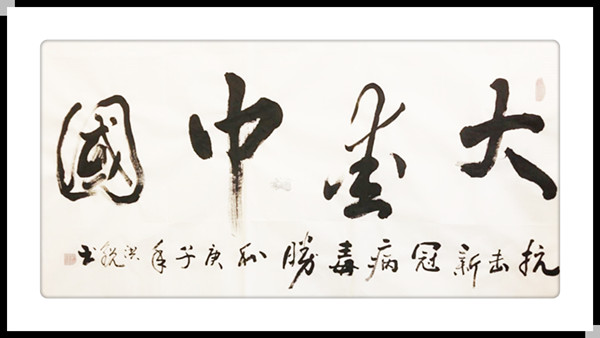 大愛中國
抗击新冠病毒勝利庚子年洪書